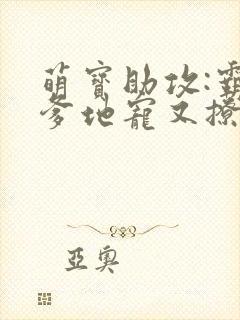 萌寶助攻:霸
爹地寵又撩
亞奧